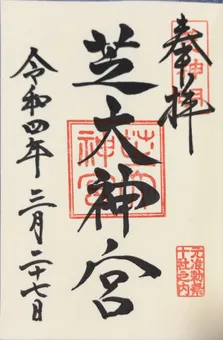 奉拝
芝大神宮
芝大神宮
元准勅祭
十社之内
令和四年三月二十七日